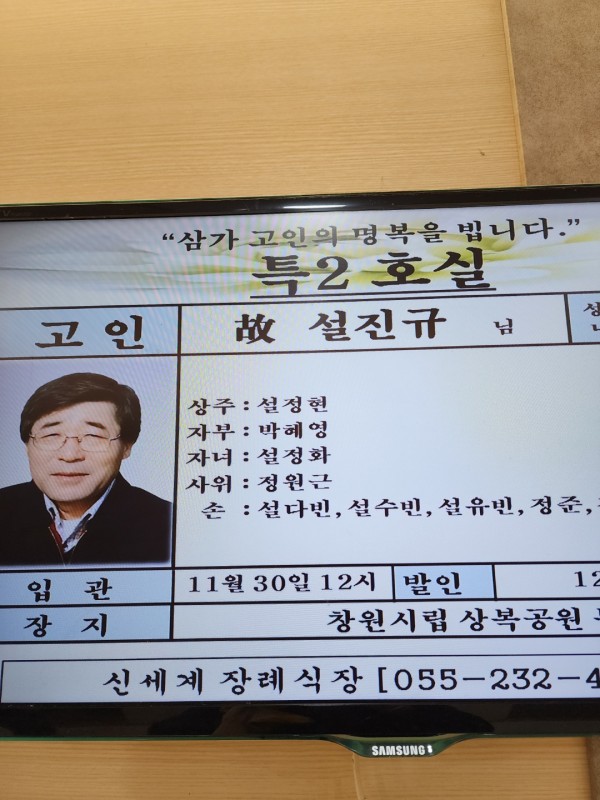 “삼가 고인의 명복을 빕니다.”
특2 호실
고인 故 설진규 님
상주 : 설정현
자부 : 박혜영
자녀 : 설정화
사위 : 정원근
손 : 설다빈, 설수빈, 설유빈, 정준,
입 관 11월 30일 12시 발인 12
장 지 창원시립 상복공원
신세계 장례식장 [055-232-4
SAMSUNG